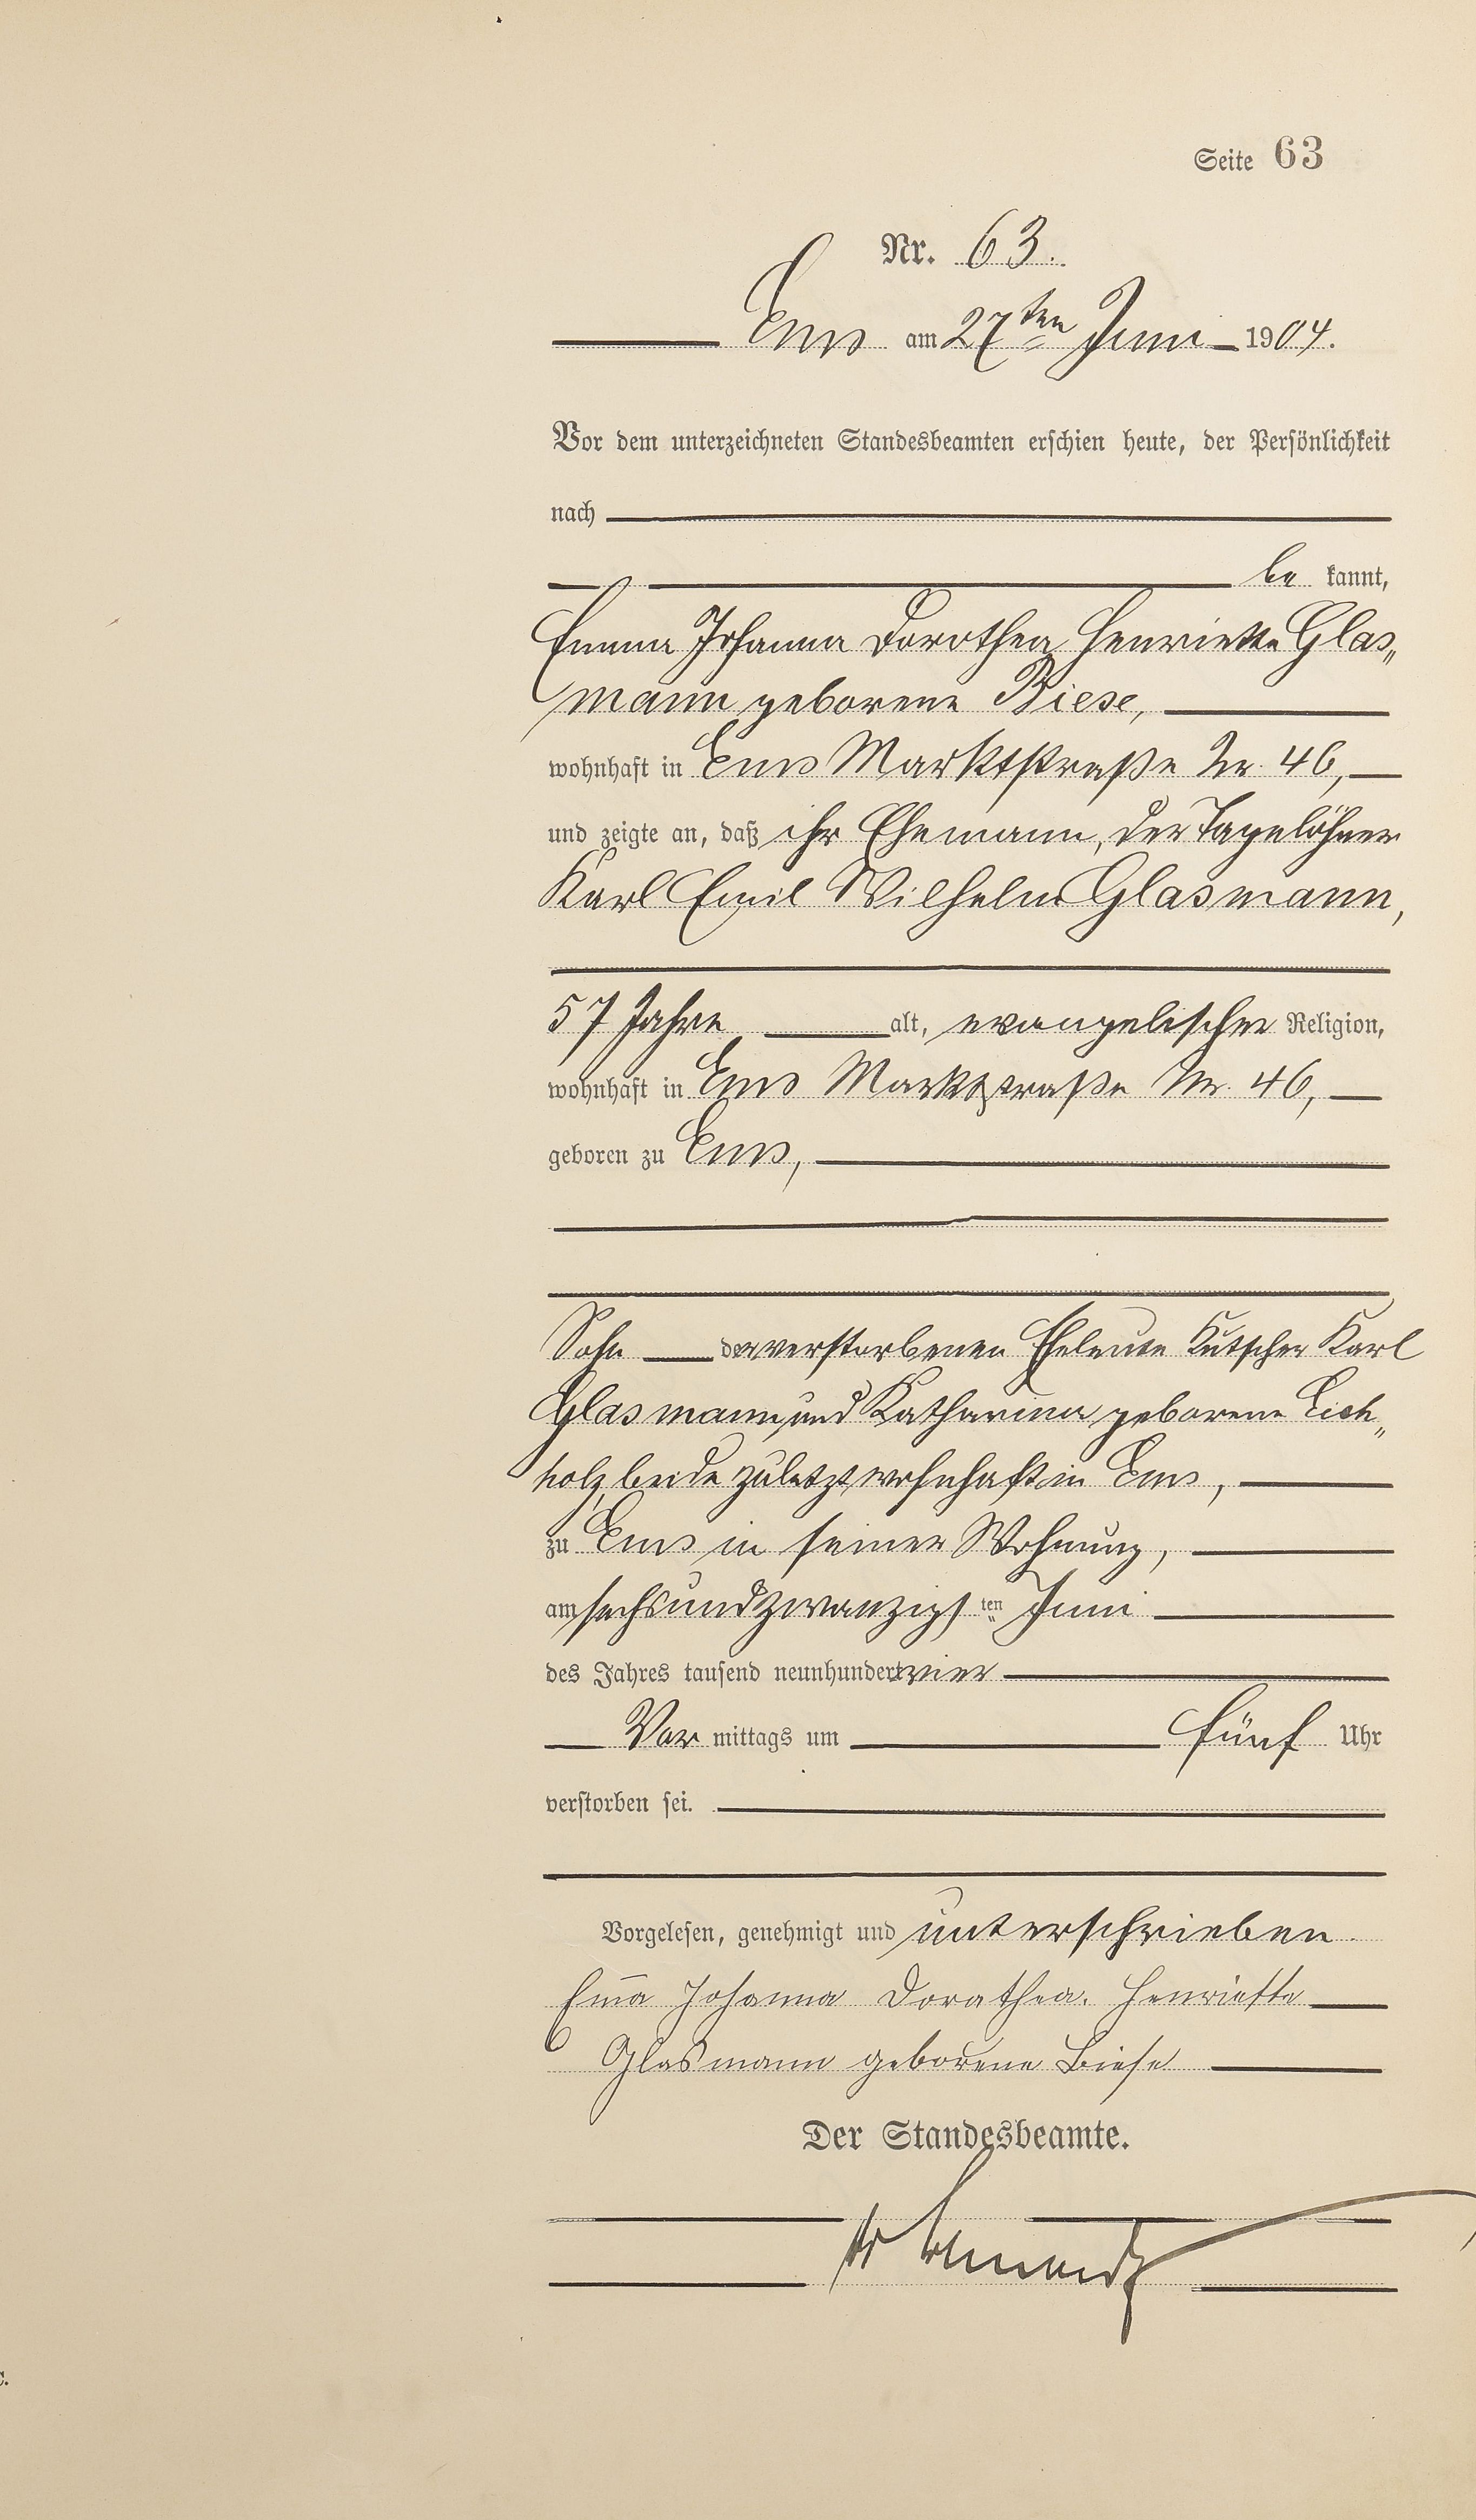 Seite 63
Nr. 63.
Ems am 27ten Juni 1904.
Vor dem unterzeichneten Standesbeamten erschien heute, der Persönlichkeit
nach
be kannt,
Emma Johanna Dorothea Henriette Glas„
mann geborene Biese,
wohnhaft in Ems Marktstraße Nr. 46,
und zeigte an, daß ihr Ehemann, der Tagelöhner
Karl Emil Wilhelm Glasmann,
57 Jahre alt, evangelischer Religion,
wohnhaft in Ems Marktstraße Nr. 46,
geboren zu Ems,
Sohn der verstorbenen Eheleute Kutscher Karl
Glasmann und Katharina geborene Eich„
holz, beide zuletzt wohnhaft in Ems,
zu Ems in seiner Wohnung,
am sechsundzwanzigsten Juni
des Jahres tausend neunhundert vier
Vor mittags um fünf Uhr
verstorben sei.
Vorgelesen, genehmigt und unterschrieben
Em̅a Johanna Dorathea. Henriette
Glasmann geborene Biese
Der Standesbeamte.